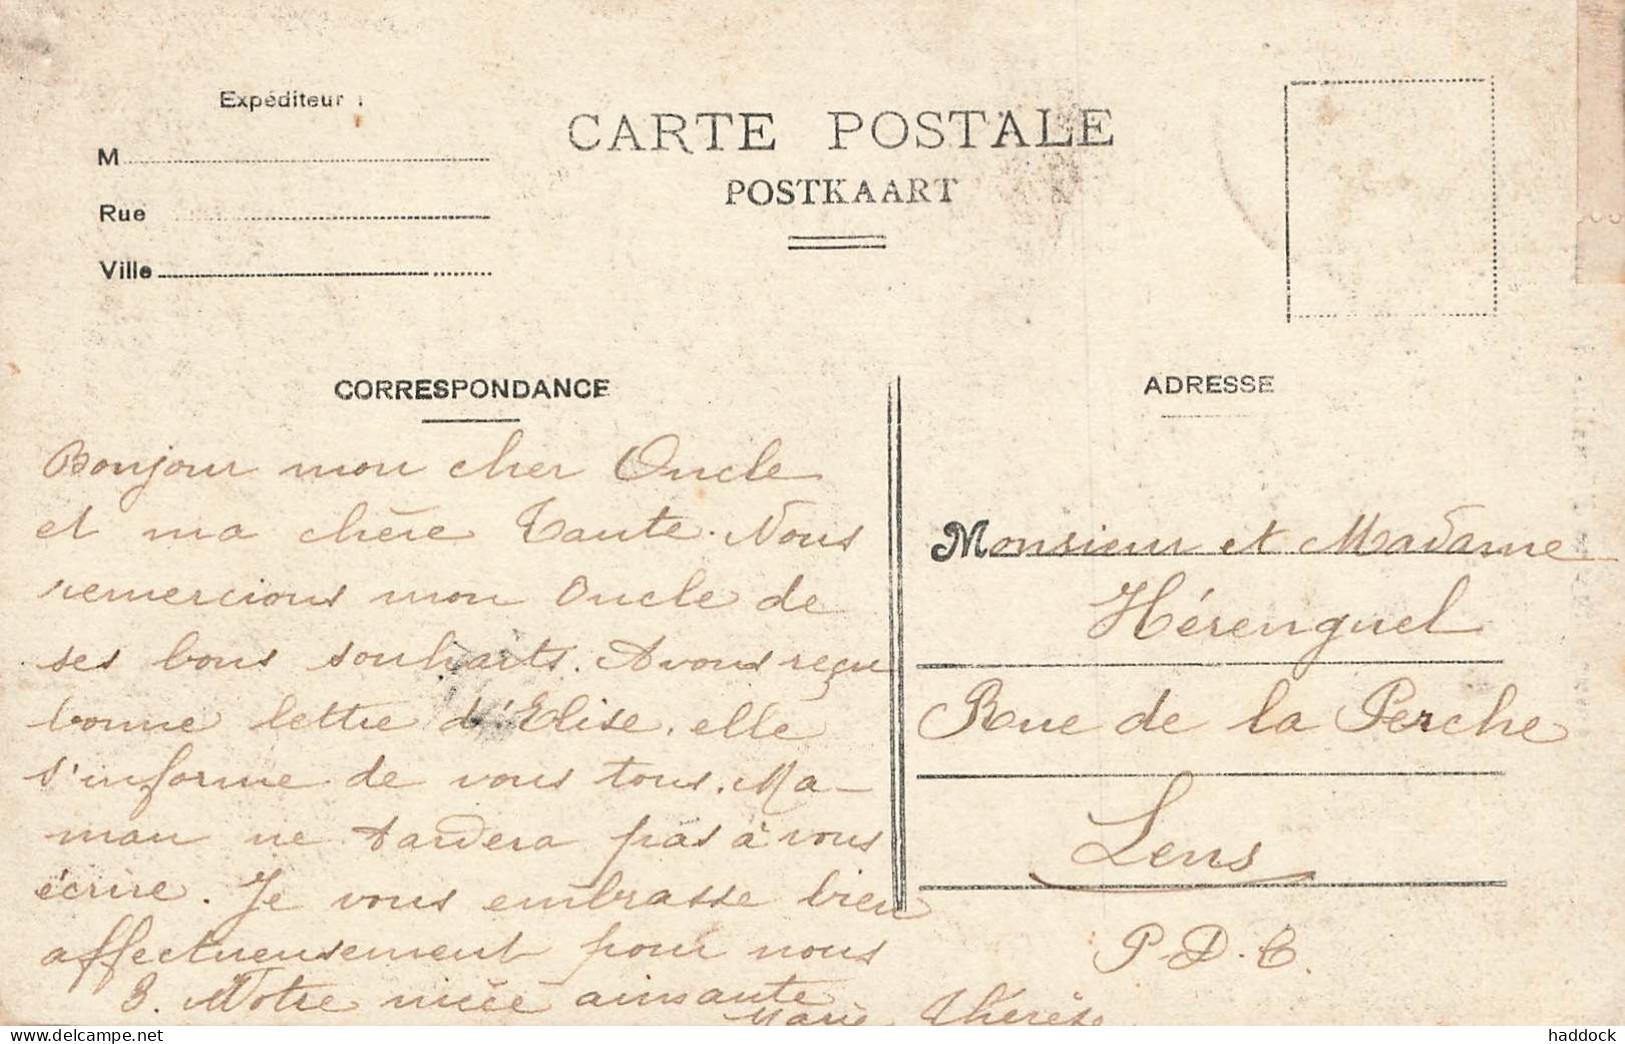 Expéditeur :
M
Rue
Ville
CARTE POSTALE
POSTKAART
CORRESPONDANCE
Bonjour mon cher Oncle
et ma chère Tante. Nous
remercions mon Oncle de
ses bons souhaits. Avons reçu
bonne lettre d'Elise, elle
s'informe de vous tous. Ma-
man ne tardera pas à vous
écrire. Je vous embrasse bien
affectueusement pour nous
3. Votre nièce aimante
Marie Thérèse
ADRESSE
Monsieur et Madame
Hérenguel
Rue de la Perche
Lens
P.D.C.
haddock